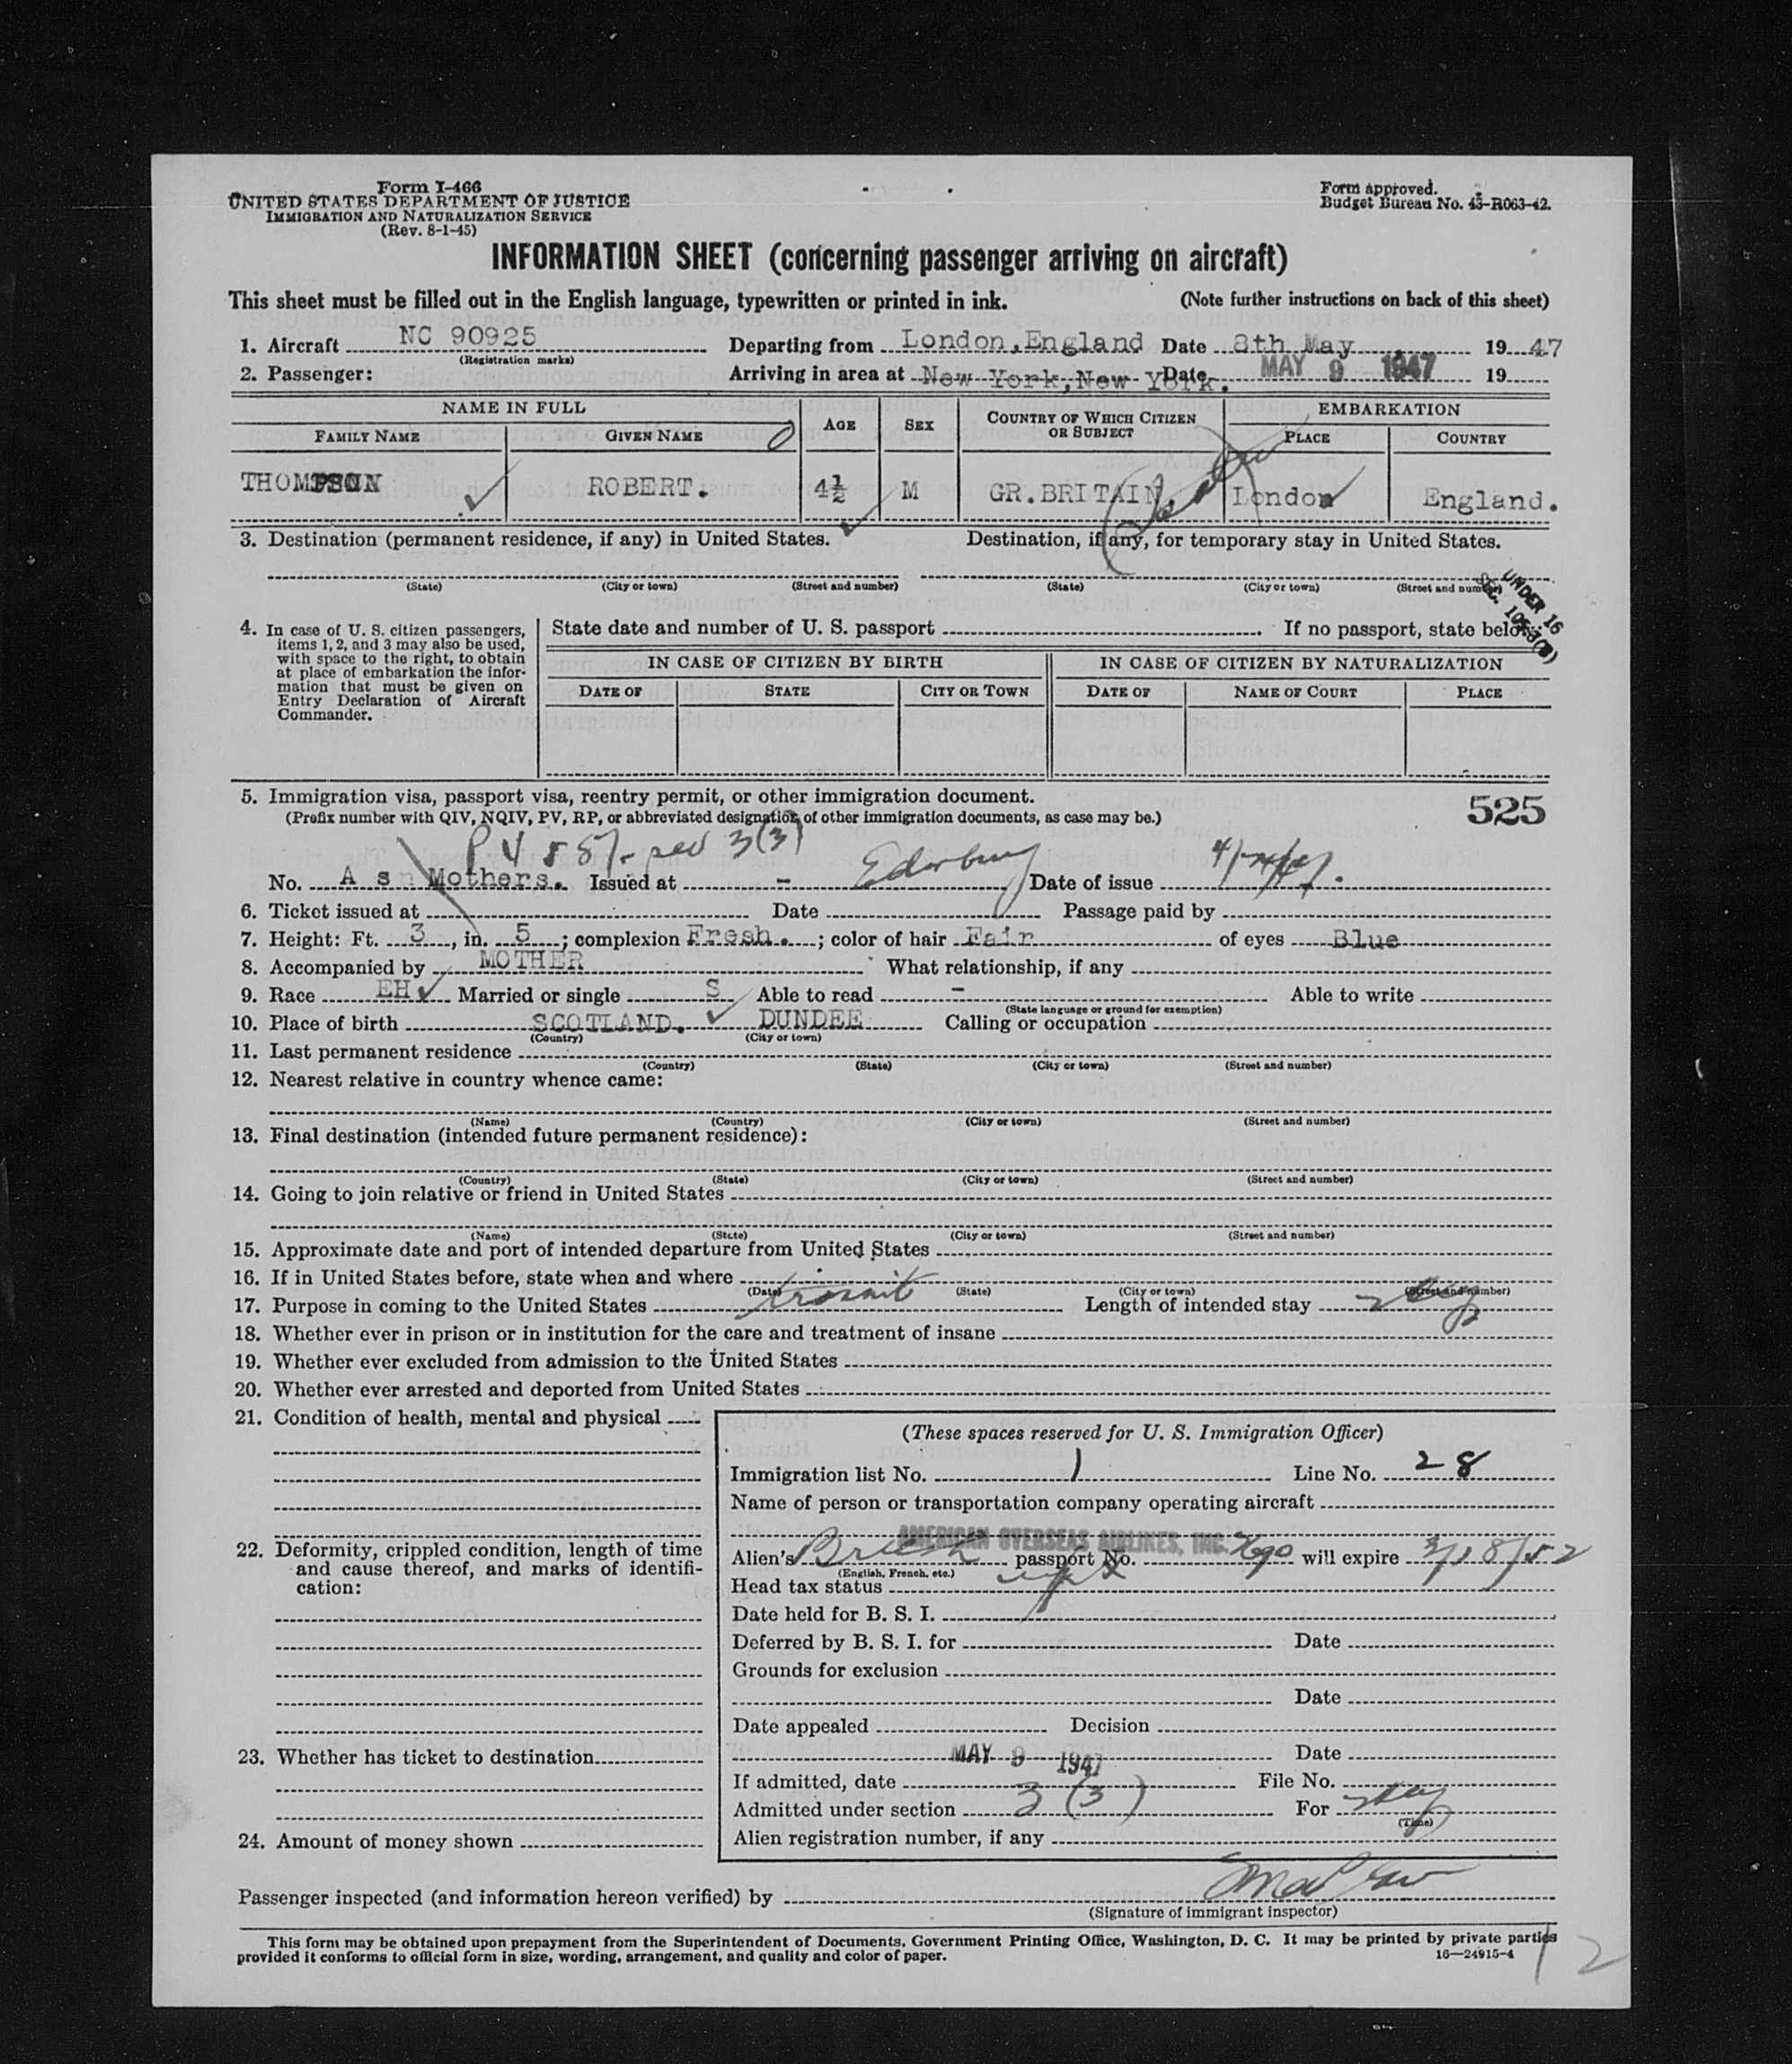 Form I-466
UNITED STATES DEPARTMENT OF JUSTICE
IMMIGRATION AND NATURALIZATION SERVICE
(Rev. 8-1-45)
Form approved.
Budget Bureau No. 43-R063-42.
INFORMATION SHEET (concerning passenger arriving on aircraft)
This sheet must be filled out in the English language, typewritten or printed in ink. (Note further instructions on back of this sheet)
1. Aircraft NC 90925 Departing from London, England Date 8th May 1947
(Registration marks)
2. Passenger: Arriving in area at New York, New York. Date MAY 9 1947 19
NAME IN FULL AGE SEX COUNTRY OF WHICH CITIZEN OR SUBJECT EMBARKATION
FAMILY NAME GIVEN NAME PLACE COUNTRY
THOMPSON ROBERT. 4½ M GR.BRITAIN. London England.
3. Destination (permanent residence, if any) in United States. Destination, if any, for temporary stay in United States.
(State) (City or town) (Street and number) (State) (City or town) (Street and number)
UNDER 16
4. In case of U. S. citizen passengers, items 1, 2, and 3 may also be used, with space to the right, to obtain at place of embarkation the information that must be given on Entry Declaration of Aircraft Commander.
State date and number of U. S. passport If no passport, state below
IN CASE OF CITIZEN BY BIRTH IN CASE OF CITIZEN BY NATURALIZATION
DATE OF STATE CITY OR TOWN DATE OF NAME OF COURT PLACE
5. Immigration visa, passport visa, reentry permit, or other immigration document. 525
(Prefix number with QIV, NQIV, PV, RP, or abbreviated designation of other immigration documents, as case may be.)
PV 3(3)
No. As Mothers. Issued at - Date of issue
6. Ticket issued at Date Passage paid by
7. Height: Ft. 3, in. 5; complexion Fresh.; color of hair Fair of eyes Blue
8. Accompanied by MOTHER What relationship, if any
9. Race EH Married or single S Able to read - Able to write
(State language or ground for exemption)
10. Place of birth SCOTLAND. DUNDEE Calling or occupation
(Country) (City or town)
11. Last permanent residence
(Country) (State) (City or town) (Street and number)
12. Nearest relative in country whence came:
(Name) (Country) (City or town) (Street and number)
13. Final destination (intended future permanent residence):
(Country) (State) (City or town) (Street and number)
14. Going to join relative or friend in United States
(Name) (State) (City or town) (Street and number)
15. Approximate date and port of intended departure from United States
16. If in United States before, state when and where
(Date) (State) (City or town) (Street and number)
17. Purpose in coming to the United States transit Length of intended stay
18. Whether ever in prison or in institution for the care and treatment of insane
19. Whether ever excluded from admission to the United States
20. Whether ever arrested and deported from United States
21. Condition of health, mental and physical
22. Deformity, crippled condition, length of time and cause thereof, and marks of identification:
23. Whether has ticket to destination
24. Amount of money shown
(These spaces reserved for U. S. Immigration Officer)
Immigration list No. 1 Line No. 28
Name of person or transportation company operating aircraft
AMERICAN OVERSEAS AIRLINES, INC.
Alien's passport No. will expire 3/18/52
(English, French, etc.)
Head tax status
Date held for B. S. I.
Deferred by B. S. I. for Date
Grounds for exclusion
Date
Date appealed Decision
Date
If admitted, date MAY 9 1947 File No.
Admitted under section 3 (3) For
(Time)
Alien registration number, if any
Passenger inspected (and information hereon verified) by
(Signature of immigrant inspector)
This form may be obtained upon prepayment from the Superintendent of Documents, Government Printing Office, Washington, D. C. It may be printed by private parties
provided it conforms to official form in size, wording, arrangement, and quality and color of paper. 16—24915-4
12